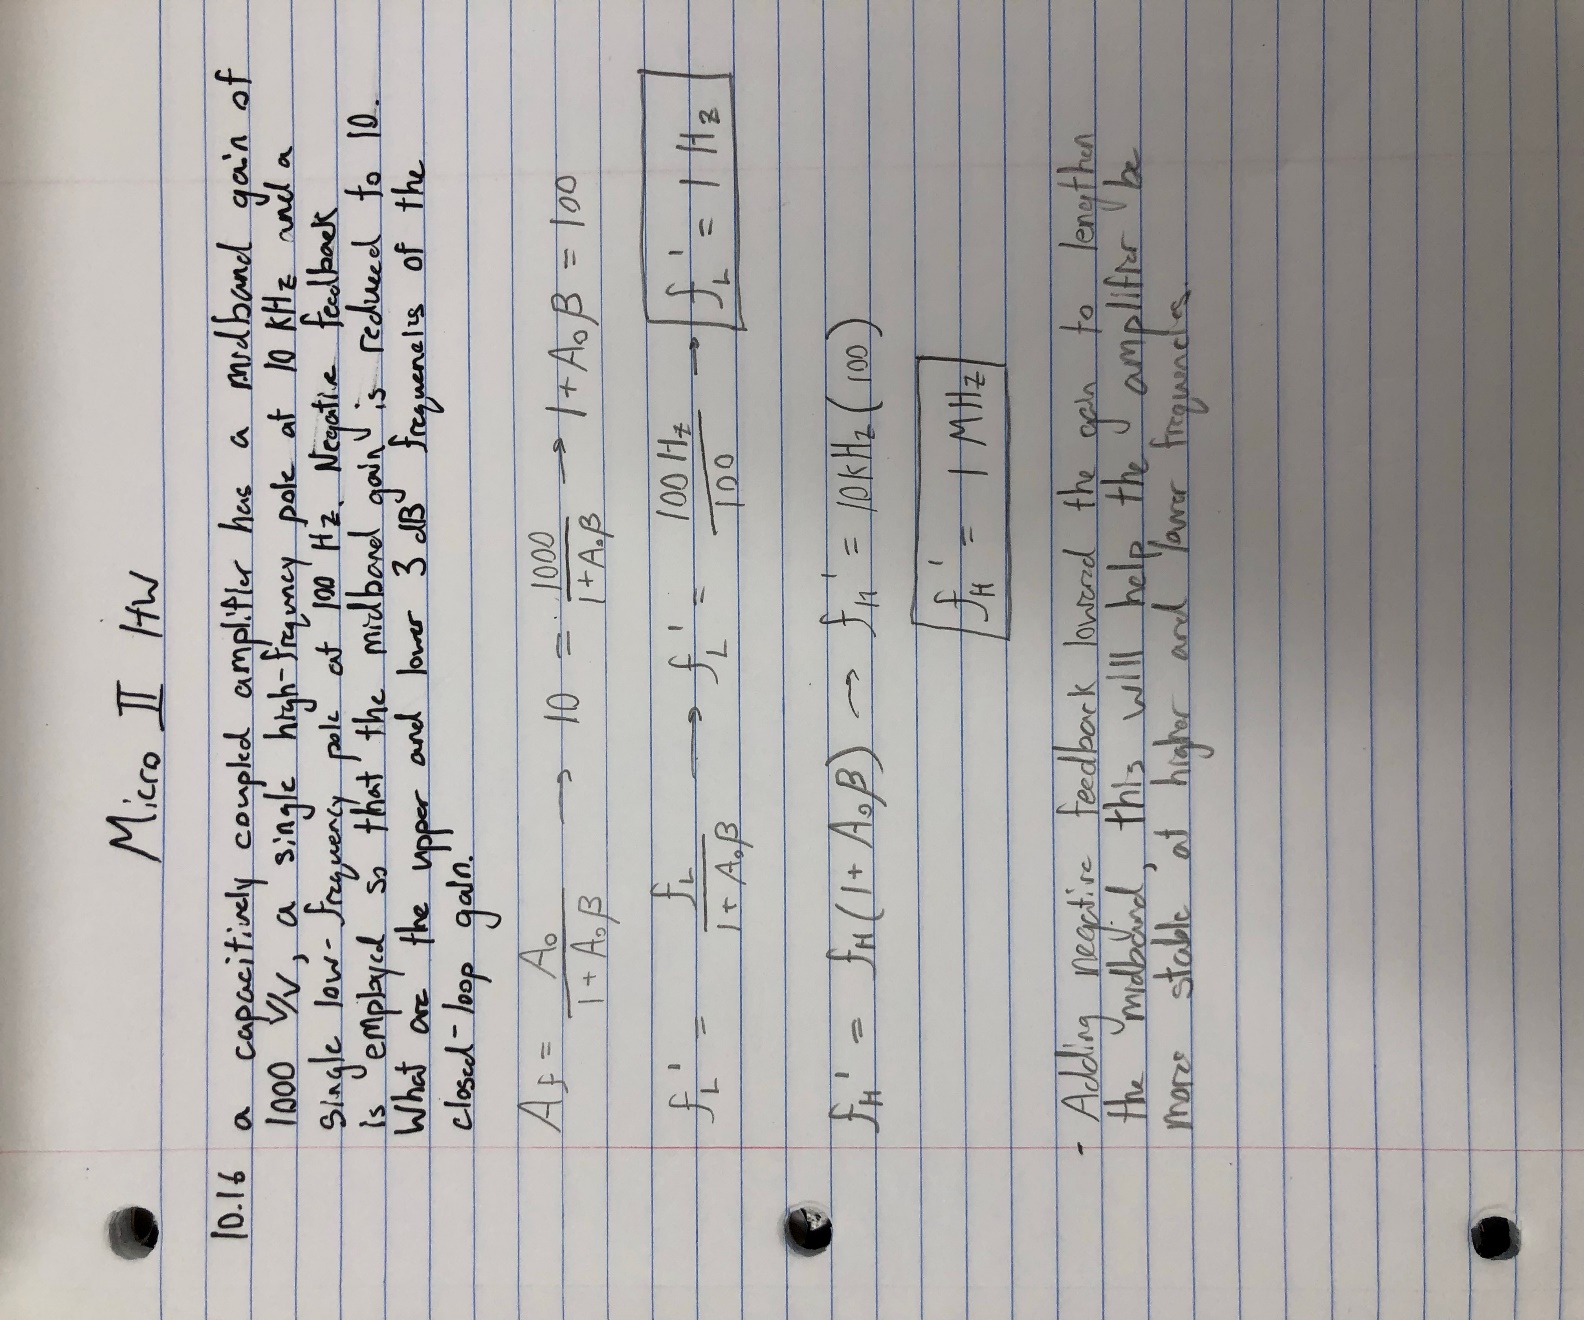 Micro II HW
10.16 a capacitively coupled amplifier has a midband gain of
1000 V/V, a single high-frequency pole at 10 kHz and a
single low-frequency pole at 100 Hz. Negative feedback
is employed so that the midband gain is reduced to 10.
What are the upper and lower 3 dB frequencies of the
closed-loop gain.
A_f = A₀ / (1 + A₀β) → 10 = 1000 / (1 + A₀β) → 1 + A₀β = 100
f_L' = f_L / (1 + A₀β) → f_L' = 100 Hz / 100 → f_L' = 1 Hz
f_H' = f_H (1 + A₀β) → f_H' = 10 kHz (100)
f_H' = 1 MHz
- Adding negative feedback lowered the gain to lengthen
the midband, this will help the amplifier be
more stable at higher and lower frequencies.